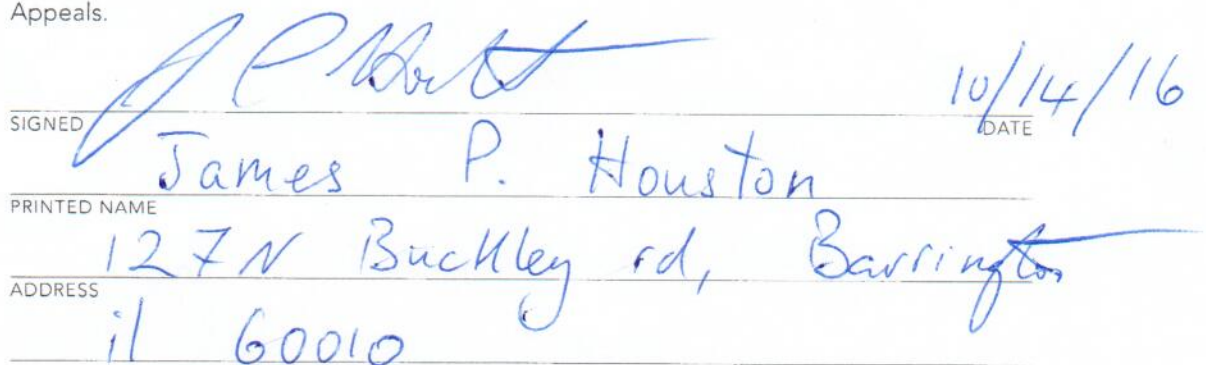 Appeals.
10/14/16
SIGNED DATE
James P. Houston
PRINTED NAME
127 N Buckley rd, Barrington
ADDRESS
il 60010